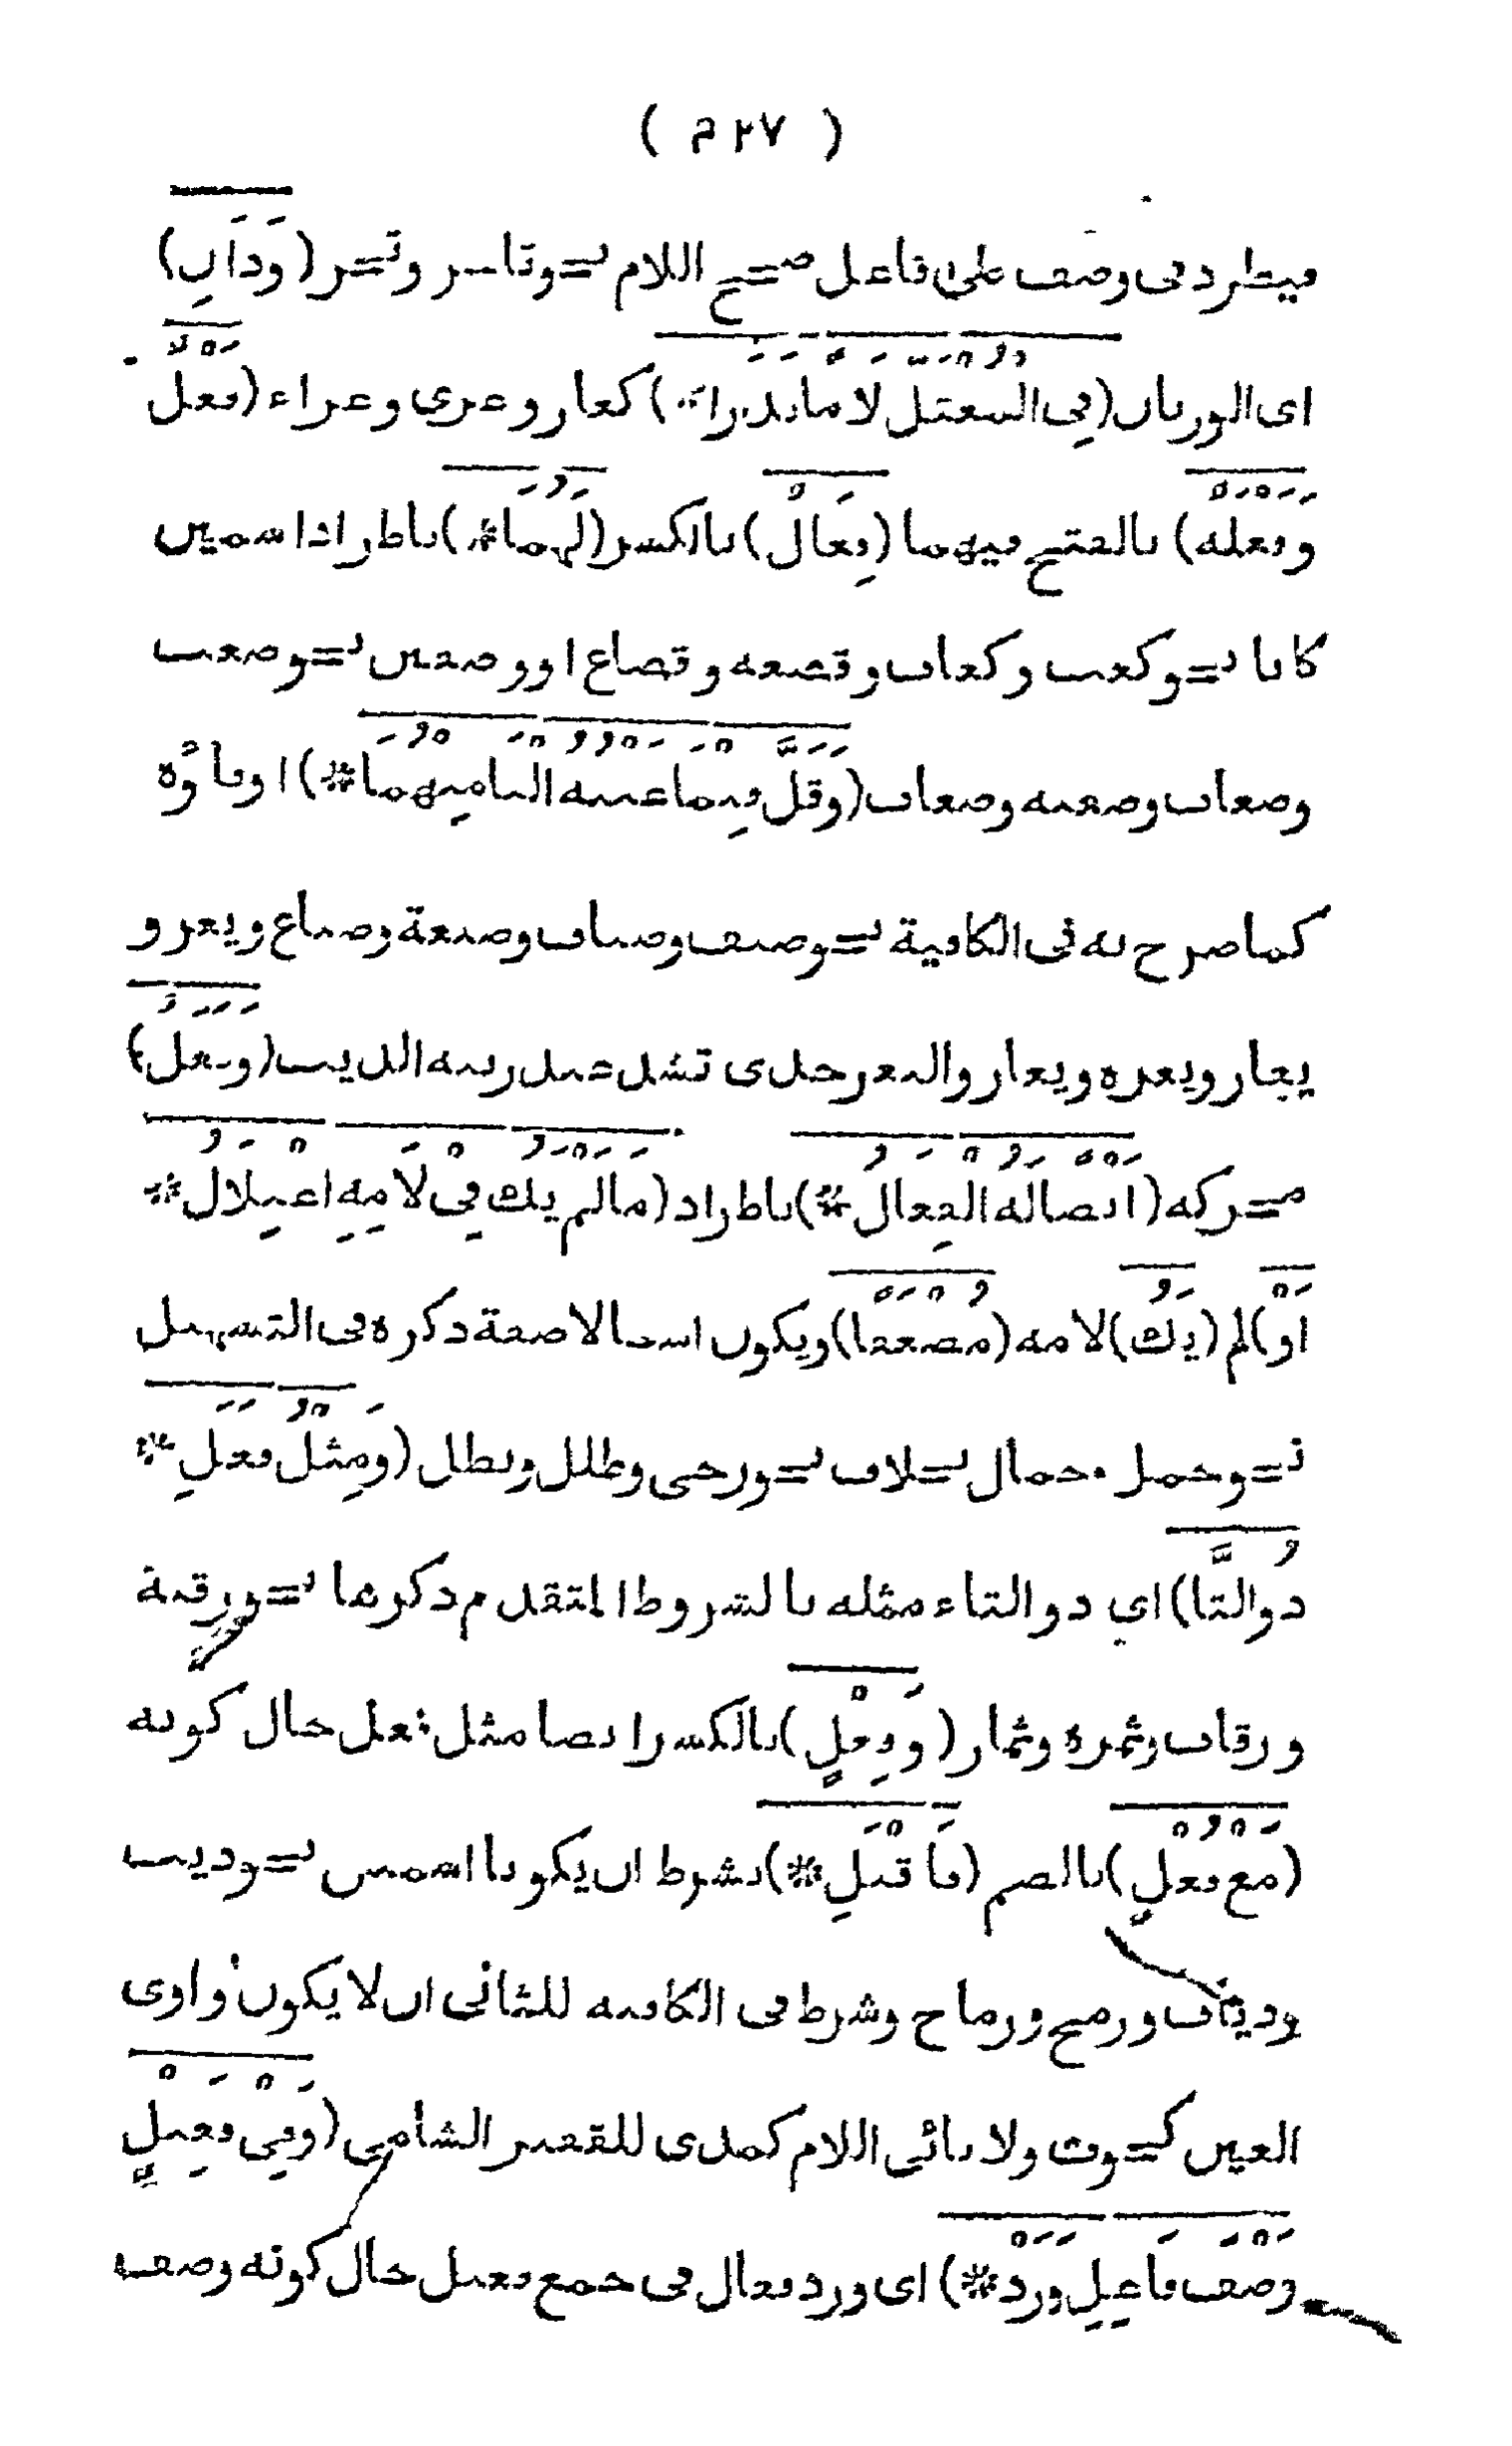 ( ٣٢٧ )
فيطرد في وصف على فاعل صحيح اللام نحو تاجر وتجر (وَذَانِ)
اى الوزنان (فِى المُعَتَلِّ لَامًا نَدَرَا*) كغاز وغزى وغزاء (فَعْلٌ
وَفَعْلَةٌ) بالفتح فيهما (فِعَالٌ) بالكسر (لَهُمَا*) باطراد اسمين
كانا نحو كعب وكعاب وقصعة وقصاع او وصفين نحو صعب
وصعاب وصعبة وصعاب (وَقَلَّ فِيمَا عَيْنُهُ اليَا مِنْهُمَا*) او فاؤه
كما صرح به فى الكافية نحو ضيف وضياف وضيعة وضياع ويعر و
يعار ويعرة ويعار واليعر جدى تشد عند زبية الذيب (وَفَعَلٌ)
محركة (اَيْضًا لَهُ الفِعَالُ*) باطراد (مَا لَمْ يَكُ فِى لَامِهِ اعْتِلَالُ*
اَوْ) لم (يَكُ) لامه (مُضْعَفًا) ويكون اسما لا صفة ذكره فى التسهيل
نحو جمل وجمال بخلاف نحو رحى وطلل وبطل (وَمِثْلُ فَعَلِ*
ذُو التَّا) اى ذو التاء مثله بالشروط المتقدم ذكرها نحو رقبة
ورقاب وثمرة وثمار (وَفِعْلٍ) بالكسر ايضا مثل فعل حال كونه
(مَعْ فُعْلٍ) بالضم (فَاقْبَلِ*) بشرط ان يكونا اسمين نحو ذيب
وذياب ورمح ورماح وشرط فى الكافية للثانى ان لا يكون واوى
العين كحوت ولا يائى اللام كمدى للقفيز الشامى (وَفِى فَعِيلٍ
وَصْفَ فَاعِلٍ وَرَدْ*) اى ورد فعال فى جمع فعيل حال كونه وصف